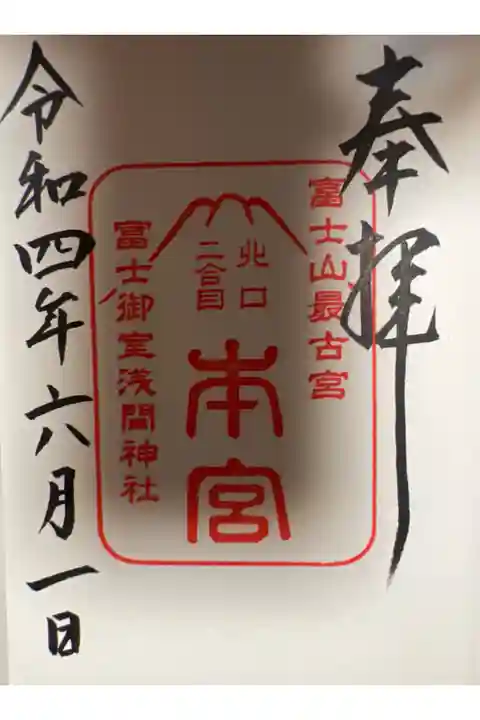 奉拝
富士山最古宮
北口
二合目
本宮
富士御室浅間神社
令和四年六月一日